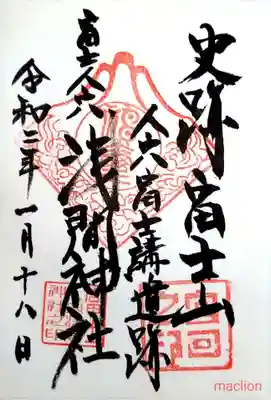 史跡 富士山
人穴富士講遺跡
富士人穴 浅間神社
令和二年 一月十八日
maclion